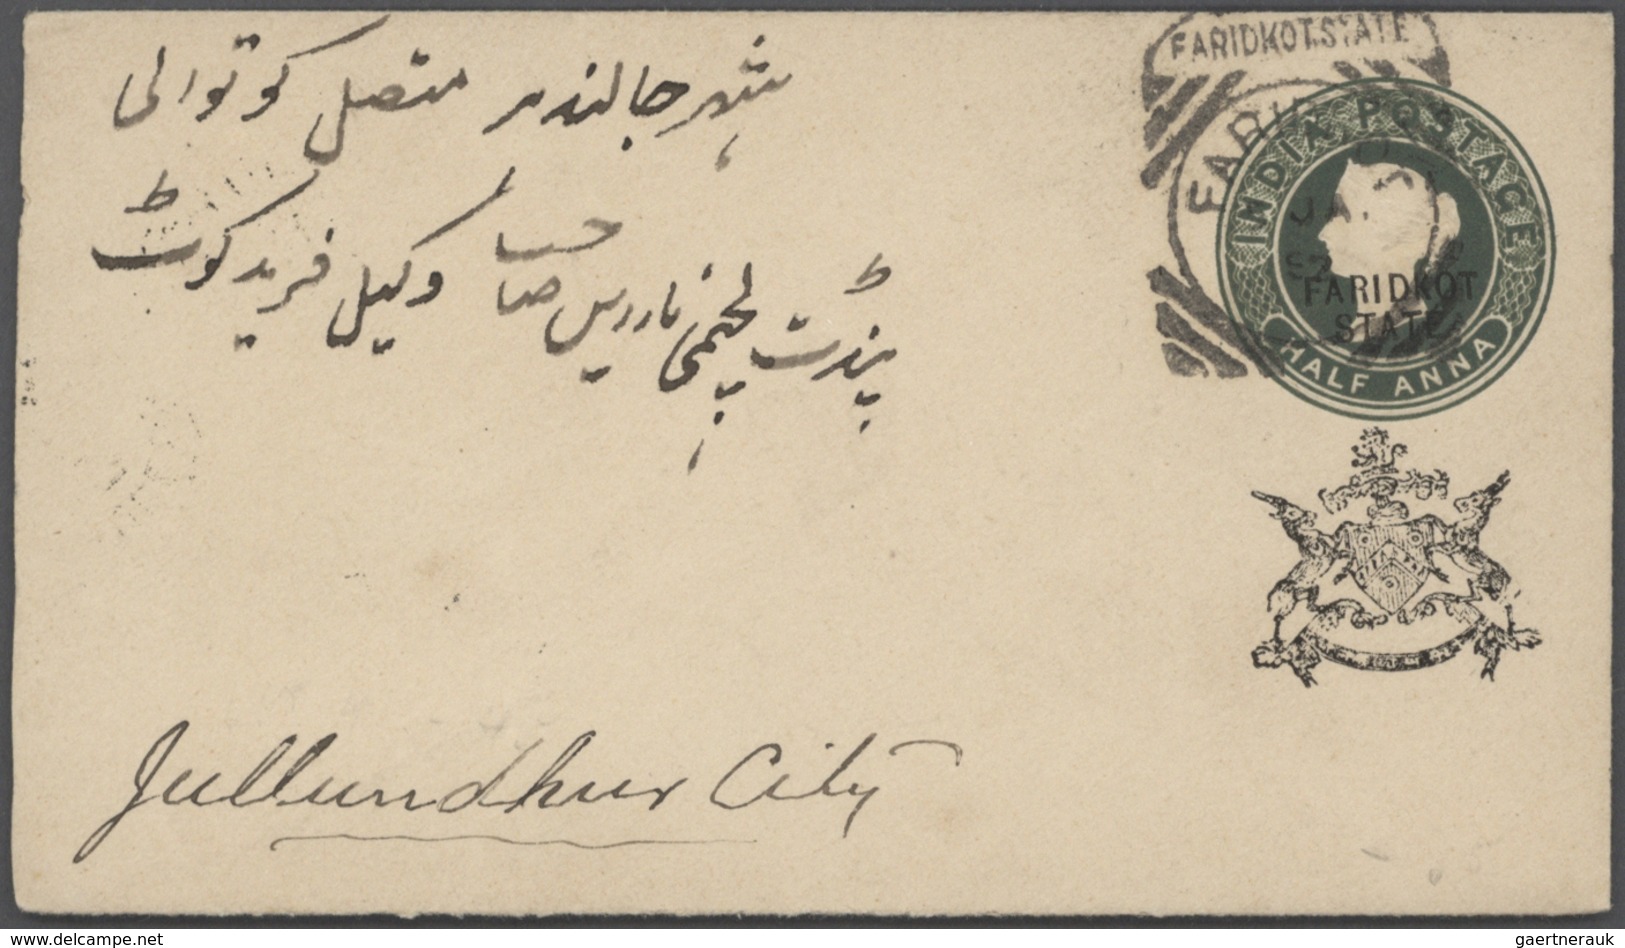 FARIDKOT STATE
INDIA POSTAGE
JA
FARIDKOT
STATE
HALF ANNA
شہر جالندہر متصل کوتوالی
پنڈت لچھمی نارایں صاحب وکیل فریدکوٹ
Jullundhur City
www.delcampe.net
gaertnerauk